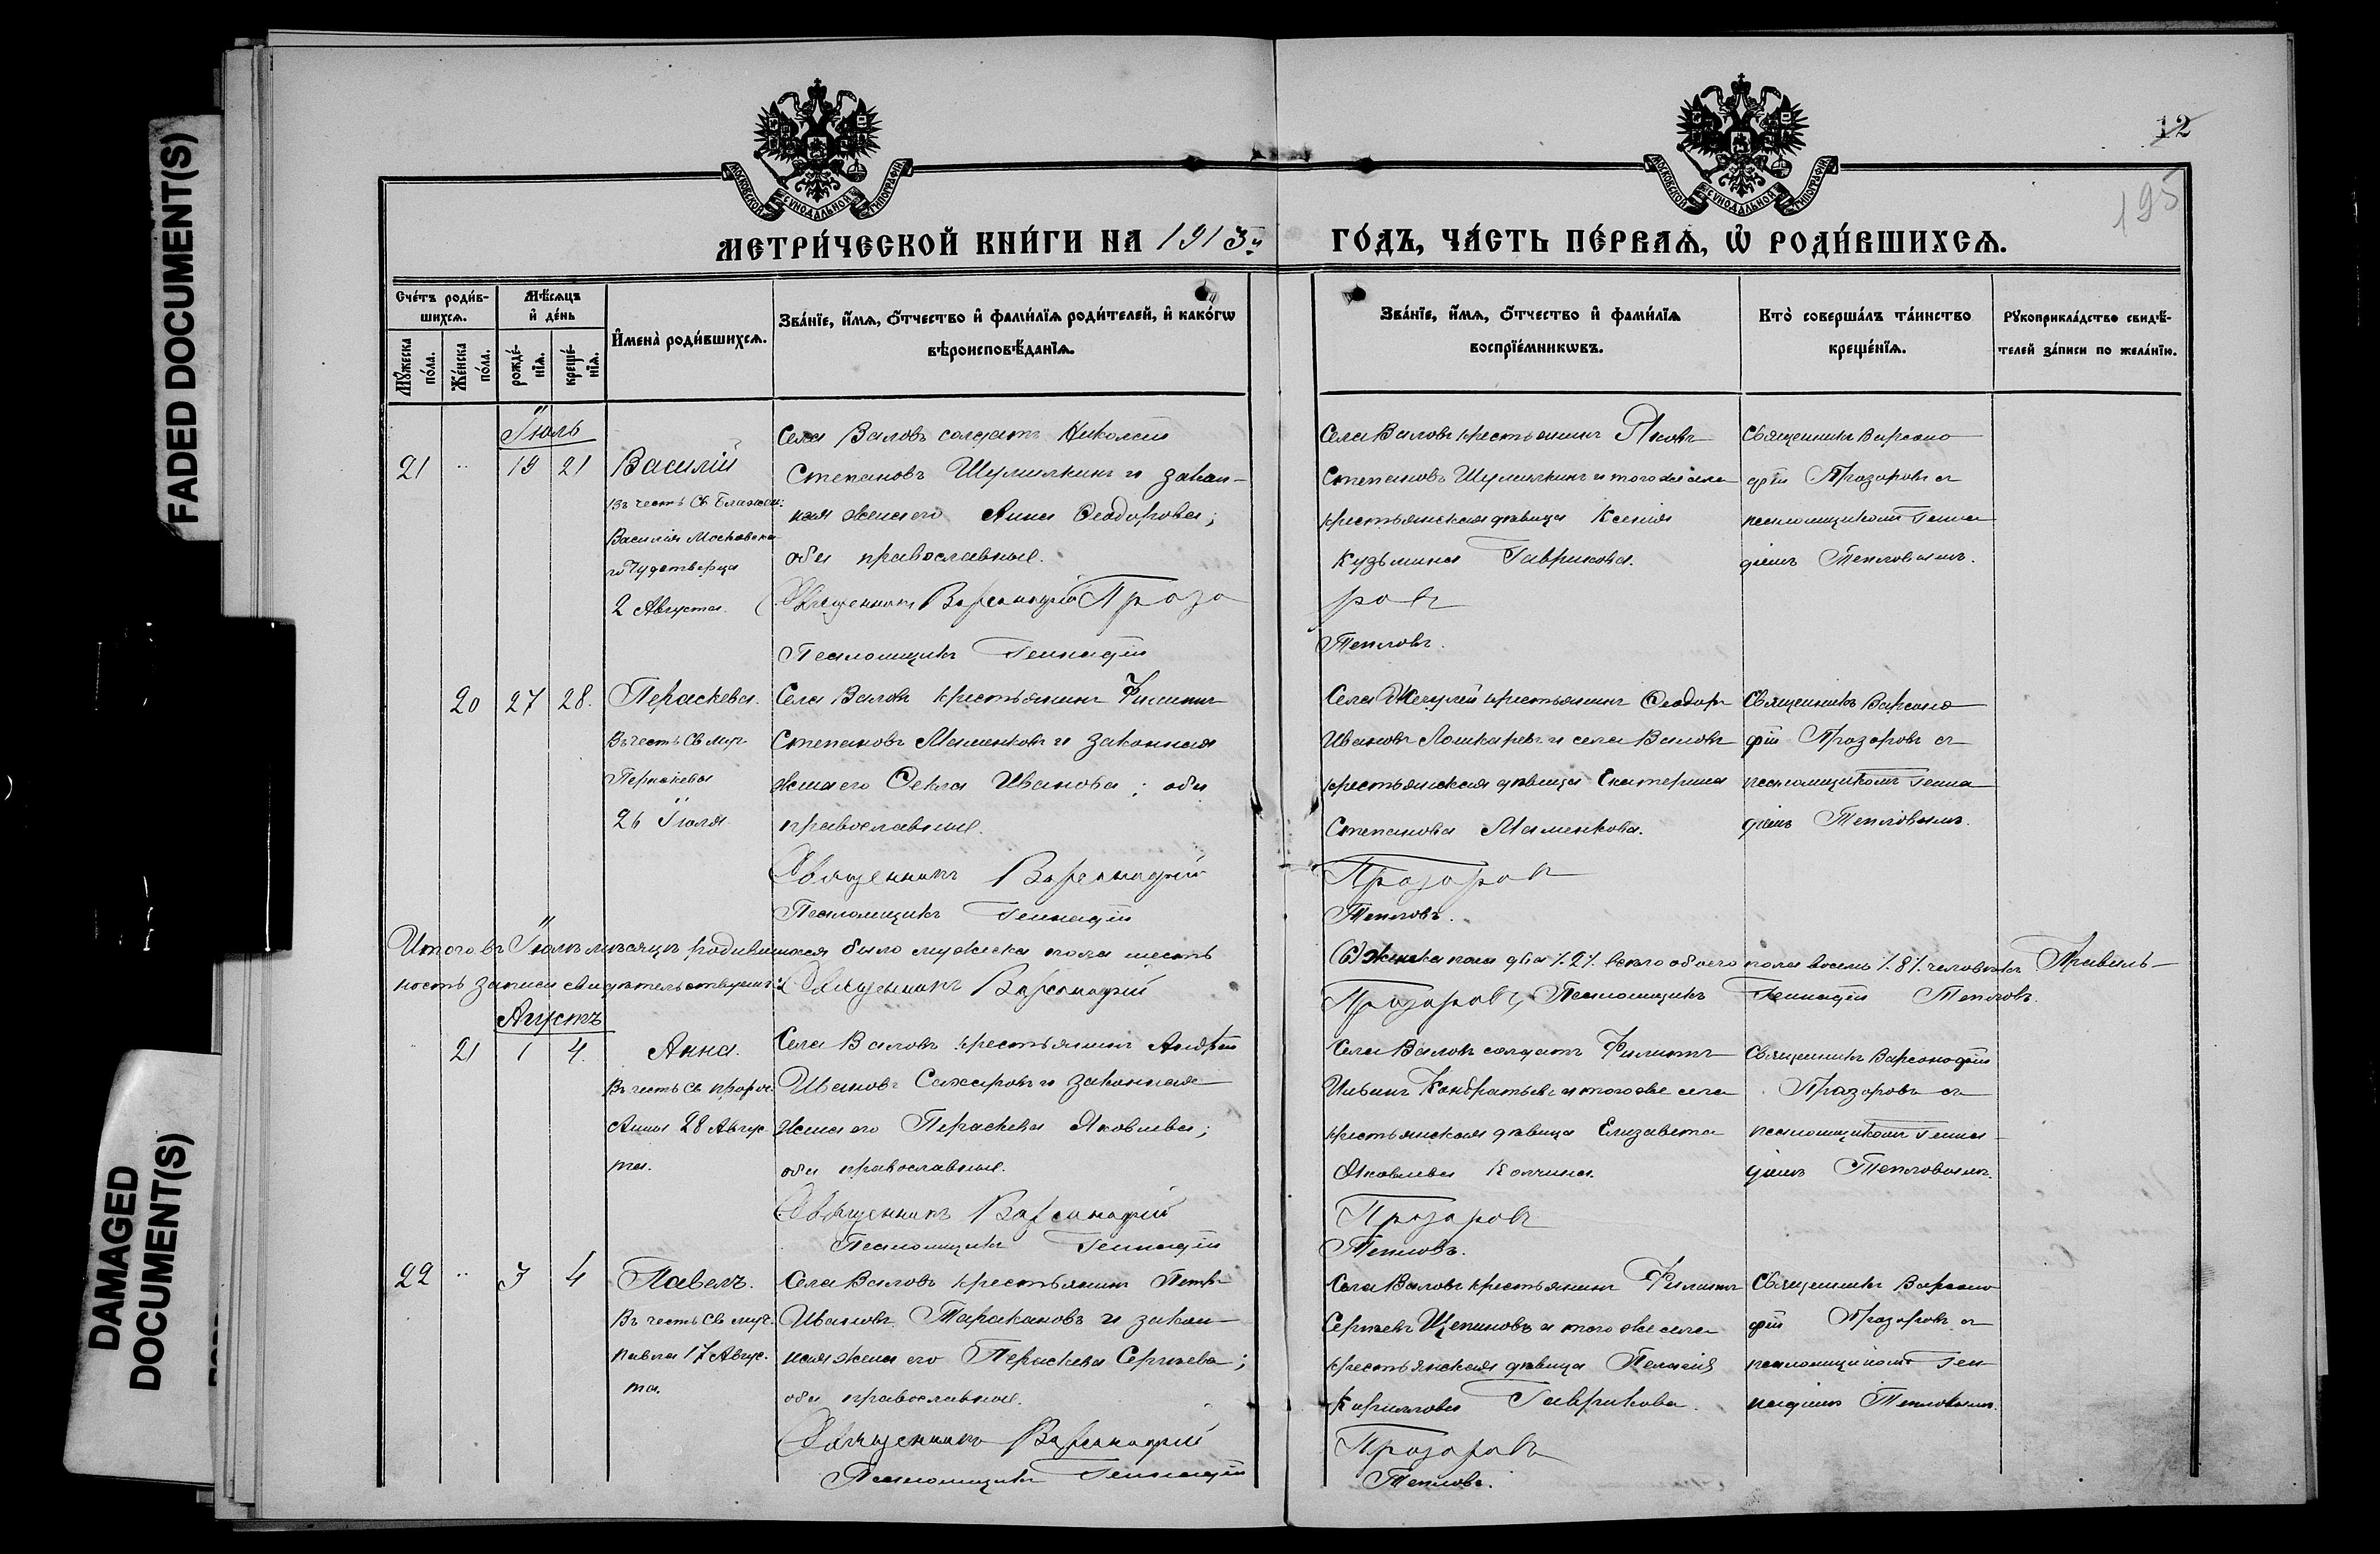 FADED DOCUMENT(S)
DAMAGED
DOCUMENT(S)
МОСКОВСКОЙ СУНОДАЛЬНОЙ ТИПОГРАФІИ
МОСКОВСКОЙ СУНОДАЛЬНОЙ ТИПОГРАФІИ
12
195
МЕТРИ́ЧЕСКОЙ КНИ́ГИ НА 1913й
ГО́ДЪ, ЧА́СТЬ ПЕ́РВАѦ, Ѡ҆ РОДИ́ВШИХСѦ.
Сче́тъ роди́в-
шихсѧ.
Мѣ́сѧцъ
и҆ де́нь
Мꙋ́жеска
по́ла.
Же́нска
по́ла.
рожде́-
нїѧ.
креще́-
нїѧ.
И҆мена̀ роди́вшихсѧ.
Зва́нїе, и҆́мѧ, ѻ҆́тчество и҆ фами́лїѧ роди́телей, и҆ како́гѡ
вѣроисповѣ́данїѧ.
Зва́нїе, и҆́мѧ, ѻ҆́тчество и҆ фами́лїѧ
воспрїе́мникѡвъ.
Кто̀ соверша́лъ та́инство
креще́нїѧ.
Рꙋкоприкла́дство свидѣ́-
телей за́писи по жела́нїю.
Іюль
21 " 19 21 Василій
Въ честь Св. Блажен:
Василія Московска
го Чудотворца
2 Августа.
Села Валовъ солдатъ Николай
Степановъ Шумилкинъ и закон-
ная жена его Анна Ѳеодорова;
оба православные.
Священникъ Варсонофій Прозо
Псаломщикъ Геннадій
Села Валовъ крестьянинъ Яковъ
Степановъ Шумилкинъ и того же села
крестьянская дѣвица Ксенія
Кузьмина Гаврикова.
ровъ
Тепловъ.
Священникъ Варсоно
фій Прозоровъ съ
псаломщикомъ Генна
діемъ Тепловымъ.
20 27 28. Параскева.
Въ честь Св. муч.
Параскевы
26 Іюля.
Села Валовъ крестьянинъ Филиппъ
Степановъ Маменковъ и законная
жена его Ѳекла Иванова; оба
православные.
Священникъ Варсонофій
Псаломщикъ Геннадій
Села Жегулей крестьянинъ Ѳеодоръ
Ивановъ Лошкаревъ и села Валовъ
крестьянская дѣвица Екатерина
Степанова Маменкова.
Прозоровъ
Тепловъ.
Священникъ Варсоно
фій Прозоровъ съ
псаломщикомъ Генна
діемъ Тепловымъ.
Итого въ Іюлѣ мѣсяцѣ родившихся было мужеска пола шесть
(6) женска пола два /.2/. всего обоего пола восемь /.8/. человѣкъ. Правиль-
ность записи свидѣтельствуемъ: Священникъ Варсонофій
Прозоровъ, Псаломщикъ Геннадій Тепловъ.
Агустъ
21 1 4. Анна.
Въ честь Св. прор.
Анны 28 Авгус-
та.
Села Валовъ крестьянинъ Андрей
Ивановъ Сахаровъ и законная
жена его Параскева Яковлева;
оба православные.
Священникъ Варсонофій
Псаломщикъ Геннадій
Села Валовъ солдатъ Филиппъ
Ильинъ Кондратьевъ и того же села
крестьянская дѣвица Елизавета
Яковлева Колчина.
Прозоровъ
Тепловъ.
Священникъ Варсонофій
Прозоровъ съ
псаломщикомъ Генна-
діемъ Тепловымъ.
22 " 3 4 Павелъ.
Въ честь Св. муч.
Павла 17 Авгус-
та.
Села Валовъ крестьянинъ Петръ
Ивановъ Таракановъ и закон-
ная жена его Параскева Сергѣева;
оба православные.
Священникъ Варсонофій
Псаломщикъ Геннадій
Села Валовъ крестьянинъ Филиппъ
Сергѣевъ Щепиновъ и того же села
крестьянская дѣвица Пелагія
Кириллова Гаврикова.
Прозоровъ
Тепловъ.
Священникъ Варсоно
фій Прозоровъ съ
псаломщикомъ Ген
надіемъ Тепловымъ.